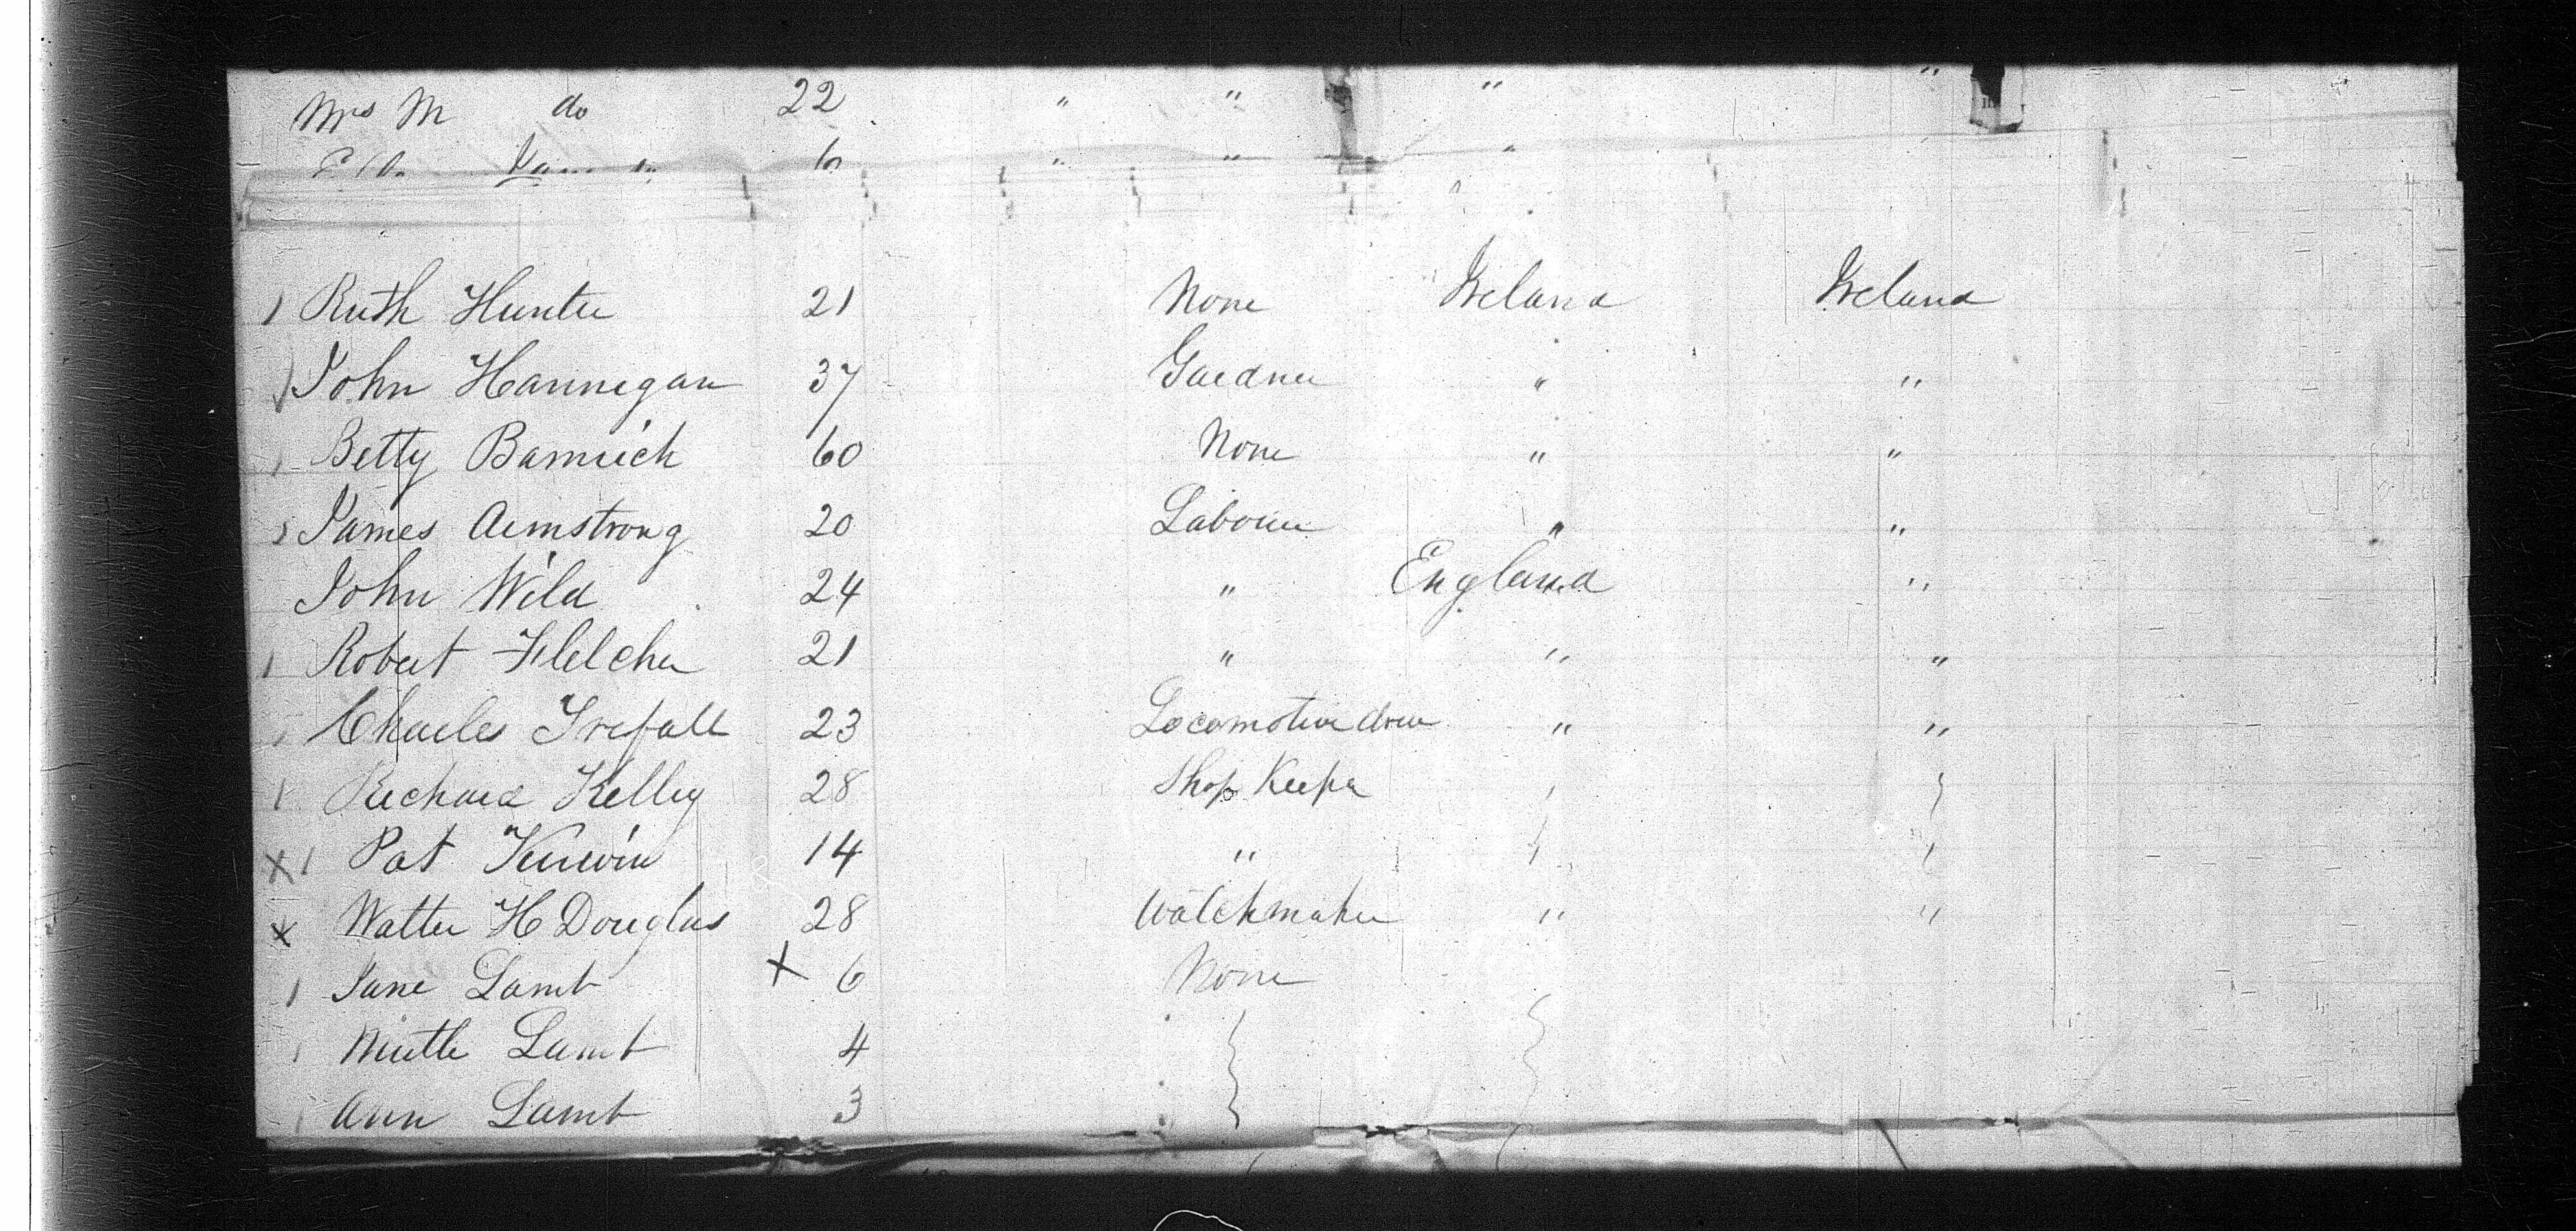 Mrs M do 22 " " " "
6 " " "
1 Ruth Hunter 21 None Ireland Ireland
John Hannegan 37 Gardner " "
Betty 60 None " "
James Armstrong 20 Labourer " "
John Wild 24 " England "
1 Robert Fletcher 21 " " "
Charles Trefall 23 Locomotive driver " "
1 Richard Kelley 28 Shop Keeper
X 1 Pat Kerwin 14 "
X Walter H Douglas 28 Watchmaker " "
1 Jane Lamb X 6 None
Lamb 4
Ann Lamb 3